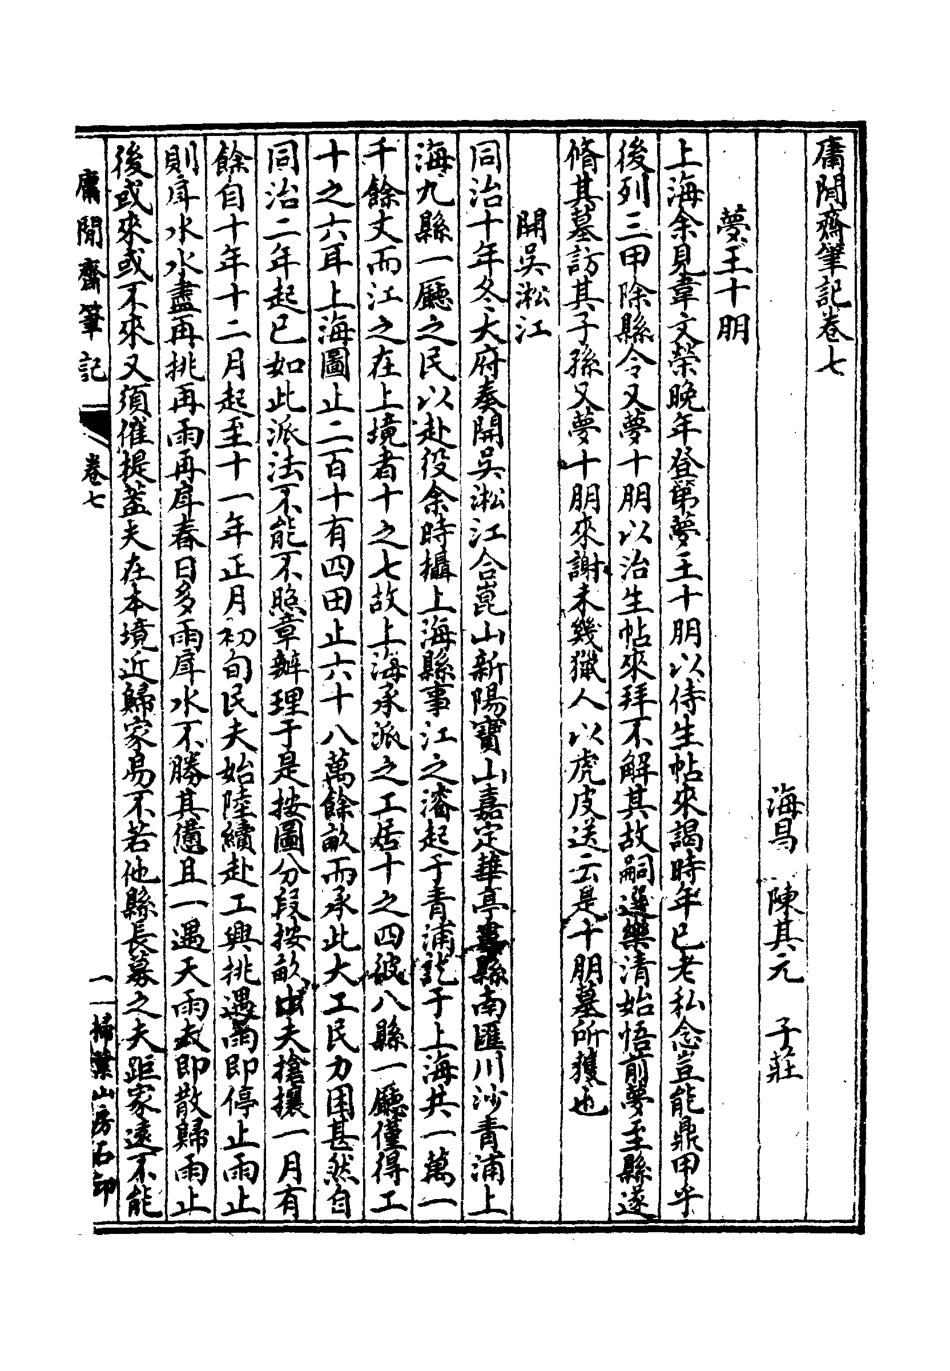 庸閒齋筆記卷七
海昌　陳其元　子莊
夢王十朋
上海余見韋文榮晚年登第夢王十朋以侍生帖來謁時年已老私念豈能鼎甲乎
後列三甲除縣令又夢十朋以治生帖來拜不解其故嗣選樂清始悟前夢至縣遂
脩其墓訪其子孫又夢十朋來謝未幾獵人以虎皮送云是十朋墓所獲也
開吳淞江
同治十年冬大府奏開吳淞江合崑山新陽寶山嘉定華亭婁縣南匯川沙青浦上
海九縣一廳之民以赴役余時攝上海縣事江之濬起于青浦訖于上海共一萬一
千餘丈而江之在上境者十之七故上海承派之工居十之四彼八縣一廳僅得工
十之六耳上海圖止二百十有四田止六十八萬餘畝而承此大工民力困甚然自
同治二年起已如此派法不能不照章辦理于是按圖分段按畝出夫搶攘一月有
餘自十年十二月起至十一年正月初旬民夫始陸續赴工興挑遇雨即停止雨止
則戽水水盡再挑再雨再戽春日多雨戽水不勝其憊且一遇天雨夫即散歸雨止
後或來或不來又須催提蓋夫在本境近歸家易不若他縣長募之夫距家遠不能
庸閒齋筆記　卷七　一　掃葉山房石印